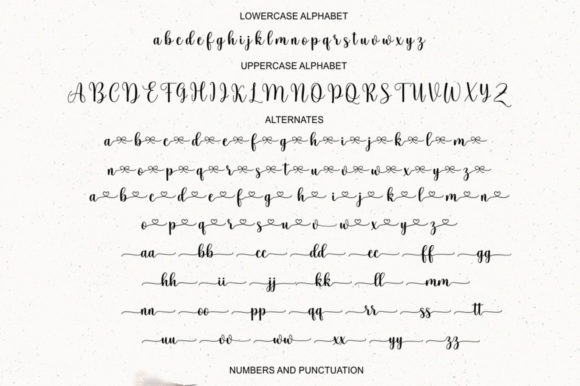 LOWERCASE ALPHABET
a b c d e f g h i j k l m n o p q r s t u v w x y z
UPPERCASE ALPHABET
A B C D E F G H I J K L M N O P Q R S T U V W X Y Z
ALTERNATES
a b c d e f g h i j k l m
n o p q r s t u v w x y z
a b c d e f g h i j k l m n
o p q r s u v w x y z
aa bb cc dd ee ff gg
hh ii jj kk ll mm
nn oo pp qq rr ss tt
uu vv ww xx yy zz
NUMBERS AND PUNCTUATION